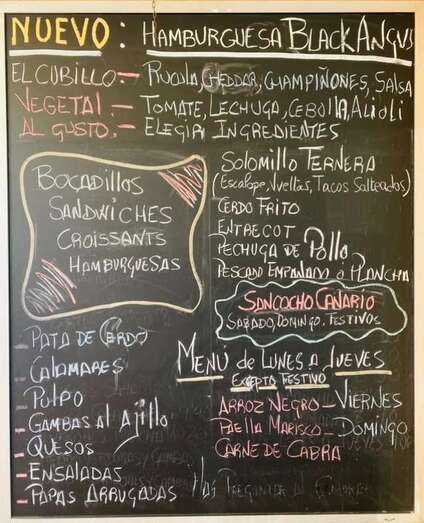 NUEVO: HAMBURGUESA BLACK ANGUS
EL CUBILLO.- RUCULA, CHEDDAR, CHAMPIÑONES, SALSA
VEGETAL.- TOMATE, LECHUGA, CEBOLLA, ALIOLI
AL GUSTO.- ELEGIR INGREDIENTES
BOCADILLOS
SANDWICHES
CROISSANTS
HAMBURGUESAS
SOLOMILLO TERNERA
(ESCALOPE, VUELTAS, TACOS SALTEADOS)
CERDO FRITO
ENTRECOT
PECHUGA DE POLLO
PESCADO EMPANADO o PLANCHA
SANCOCHO CANARIO
SABADO, DOMINGO. FESTIVOS
- PATA DE CERDO
- CALAMARES
- PULPO
- GAMBAS AL AJILLO
- QUESOS
- ENSALADAS
- PAPAS ARRUGADAS
MENU de LUNES A JUEVES
EXCEPTO FESTIVO
ARROZ NEGRO - VIERNES
PAELLA MARISCO - DOMINGO
CARNE DE CABRA